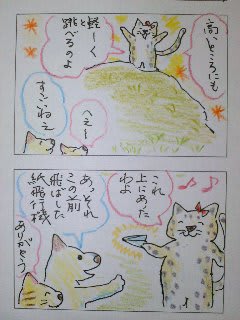 高いところにも
軽ーくと
跳べるのよ
へえー
すごいねえ
これ
上にあた
わよ
あっそれ
この前
飛ばした
紙飛行機
ありがとう